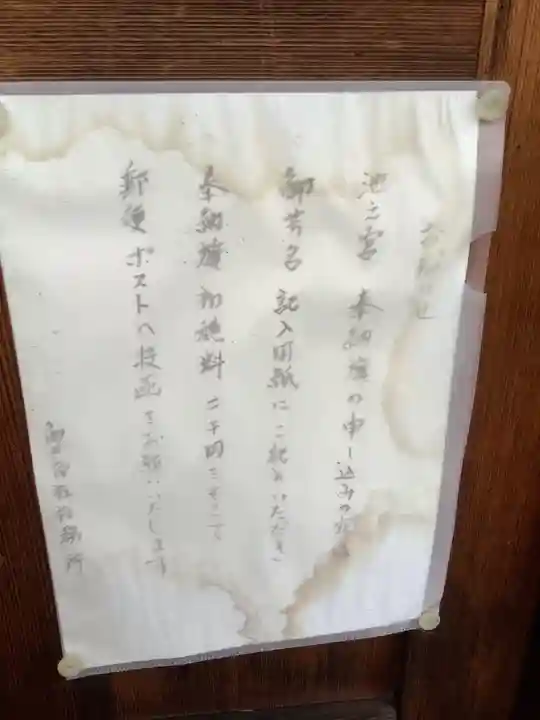 池之宮 奉納旗の申し込みの
御芳名 記入用紙にご記入いただき
奉納旗初穂料 二千円をそえて
郵便ポストへ投函をお願いいたします
務所